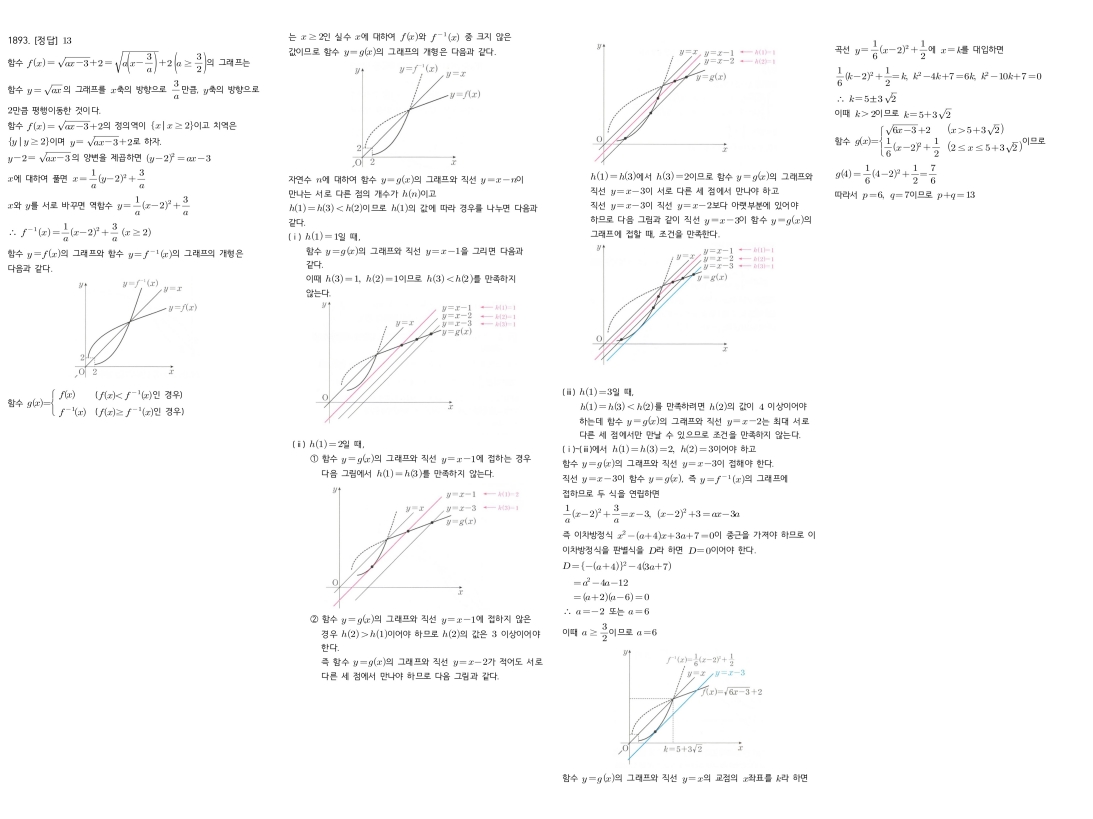 1893. [정답] 13
함수 f(x)=√(ax−3)+2=√(a(x−3/a))+2 (a≥3/2)의 그래프는
함수 y=√(ax)의 그래프를 x축의 방향으로 3/a만큼, y축의 방향으로
2만큼 평행이동한 것이다.
함수 f(x)=√(ax−3)+2의 정의역이 {x|x≥2}이고 치역은
{y|y≥2}이며 y=√(ax−3)+2로 하자.
y−2=√(ax−3)의 양변을 제곱하면 (y−2)²=ax−3
x에 대하여 풀면 x=1/a(y−2)²+3/a
x와 y를 서로 바꾸면 역함수 y=1/a(x−2)²+3/a
∴ f⁻¹(x)=1/a(x−2)²+3/a (x≥2)
함수 y=f(x)의 그래프와 함수 y=f⁻¹(x)의 그래프의 개형은
다음과 같다.
y
y=f⁻¹(x)
y=x
y=f(x)
2
O 2 x
함수 g(x)={ f(x) (f(x)<f⁻¹(x)인 경우)
f⁻¹(x) (f(x)≥f⁻¹(x)인 경우)
는 x≥2인 실수 x에 대하여 f(x)와 f⁻¹(x) 중 크지 않은
값이므로 함수 y=g(x)의 그래프의 개형은 다음과 같다.
y
y=f⁻¹(x)
y=x
y=f(x)
2
O 2 x
자연수 n에 대하여 함수 y=g(x)의 그래프와 직선 y=x−n이
만나는 서로 다른 점의 개수가 h(n)이고
h(1)=h(3)<h(2)이므로 h(1)의 값에 따라 경우를 나누면 다음과
같다.
(ⅰ) h(1)=1일 때,
함수 y=g(x)의 그래프와 직선 y=x−1을 그리면 다음과
같다.
이때 h(3)=1, h(2)=1이므로 h(3)<h(2)를 만족하지
않는다.
y
y=x
y=x−1 h(1)=1
y=x−2 h(2)=1
y=x−3 h(3)=1
y=g(x)
O x
(ⅱ) h(1)=2일 때,
① 함수 y=g(x)의 그래프와 직선 y=x−1에 접하는 경우
다음 그림에서 h(1)=h(3)를 만족하지 않는다.
y
y=x
y=x−1 h(1)=2
y=x−3 h(3)=1
y=g(x)
O x
② 함수 y=g(x)의 그래프와 직선 y=x−1에 접하지 않은
경우 h(2)>h(1)이어야 하므로 h(2)의 값은 3 이상이어야
한다.
즉 함수 y=g(x)의 그래프와 직선 y=x−2가 적어도 서로
다른 세 점에서 만나야 하므로 다음 그림과 같다.
y
y=x
y=x−1
y=x−2
y=g(x)
O x
h(1)=h(3)에서 h(3)=2이므로 함수 y=g(x)의 그래프와
직선 y=x−3이 서로 다른 세 점에서 만나야 하고
직선 y=x−3이 직선 y=x−2보다 아랫부분에 있어야
하므로 다음 그림과 같이 직선 y=x−3이 함수 y=g(x)의
그래프에 접할 때, 조건을 만족한다.
y
y=x
y=x−1
y=x−2
y=x−3
y=g(x)
O x
(ⅲ) h(1)=3일 때,
h(1)=h(3)<h(2)를 만족하려면 h(2)의 값이 4 이상이어야
하는데 함수 y=g(x)의 그래프와 직선 y=x−2는 최대 서로
다른 세 점에서만 만날 수 있으므로 조건을 만족하지 않는다.
(ⅰ)~(ⅲ)에서 h(1)=h(3)=2, h(2)=3이어야 하고
함수 y=g(x)의 그래프와 직선 y=x−3이 접해야 한다.
직선 y=x−3이 함수 y=g(x), 즉 y=f⁻¹(x)의 그래프에
접하므로 두 식을 연립하면
1/a(x−2)²+3/a=x−3, (x−2)²+3=ax−3a
즉 이차방정식 x²−(a+4)x+3a+7=0이 중근을 가져야 하므로 이
이차방정식을 판별식을 D라 하면 D=0이어야 한다.
D={−(a+4)}²−4(3a+7)
=a²−4a−12
=(a+2)(a−6)=0
∴ a=−2 또는 a=6
이때 a≥3/2이므로 a=6
y
f⁻¹(x)=1/6(x−2)²+1/2
y=x
y=x−3
f(x)=√(6x−3)+2
O k=5+3√2 x
함수 y=g(x)의 그래프와 직선 y=x의 교점의 x좌표를 k라 하면
곡선 y=1/6(x−2)²+1/2에 x=k를 대입하면
1/6(k−2)²+1/2=k, k²−4k+7=6k, k²−10k+7=0
∴ k=5±3√2
이때 k>2이므로 k=5+3√2
함수 g(x)={ √(6x−3)+2 (x>5+3√2)
1/6(x−2)²+1/2 (2≤x≤5+3√2) 이므로
g(4)=1/6(4−2)²+1/2=7/6
따라서 p=6, q=7이므로 p+q=13